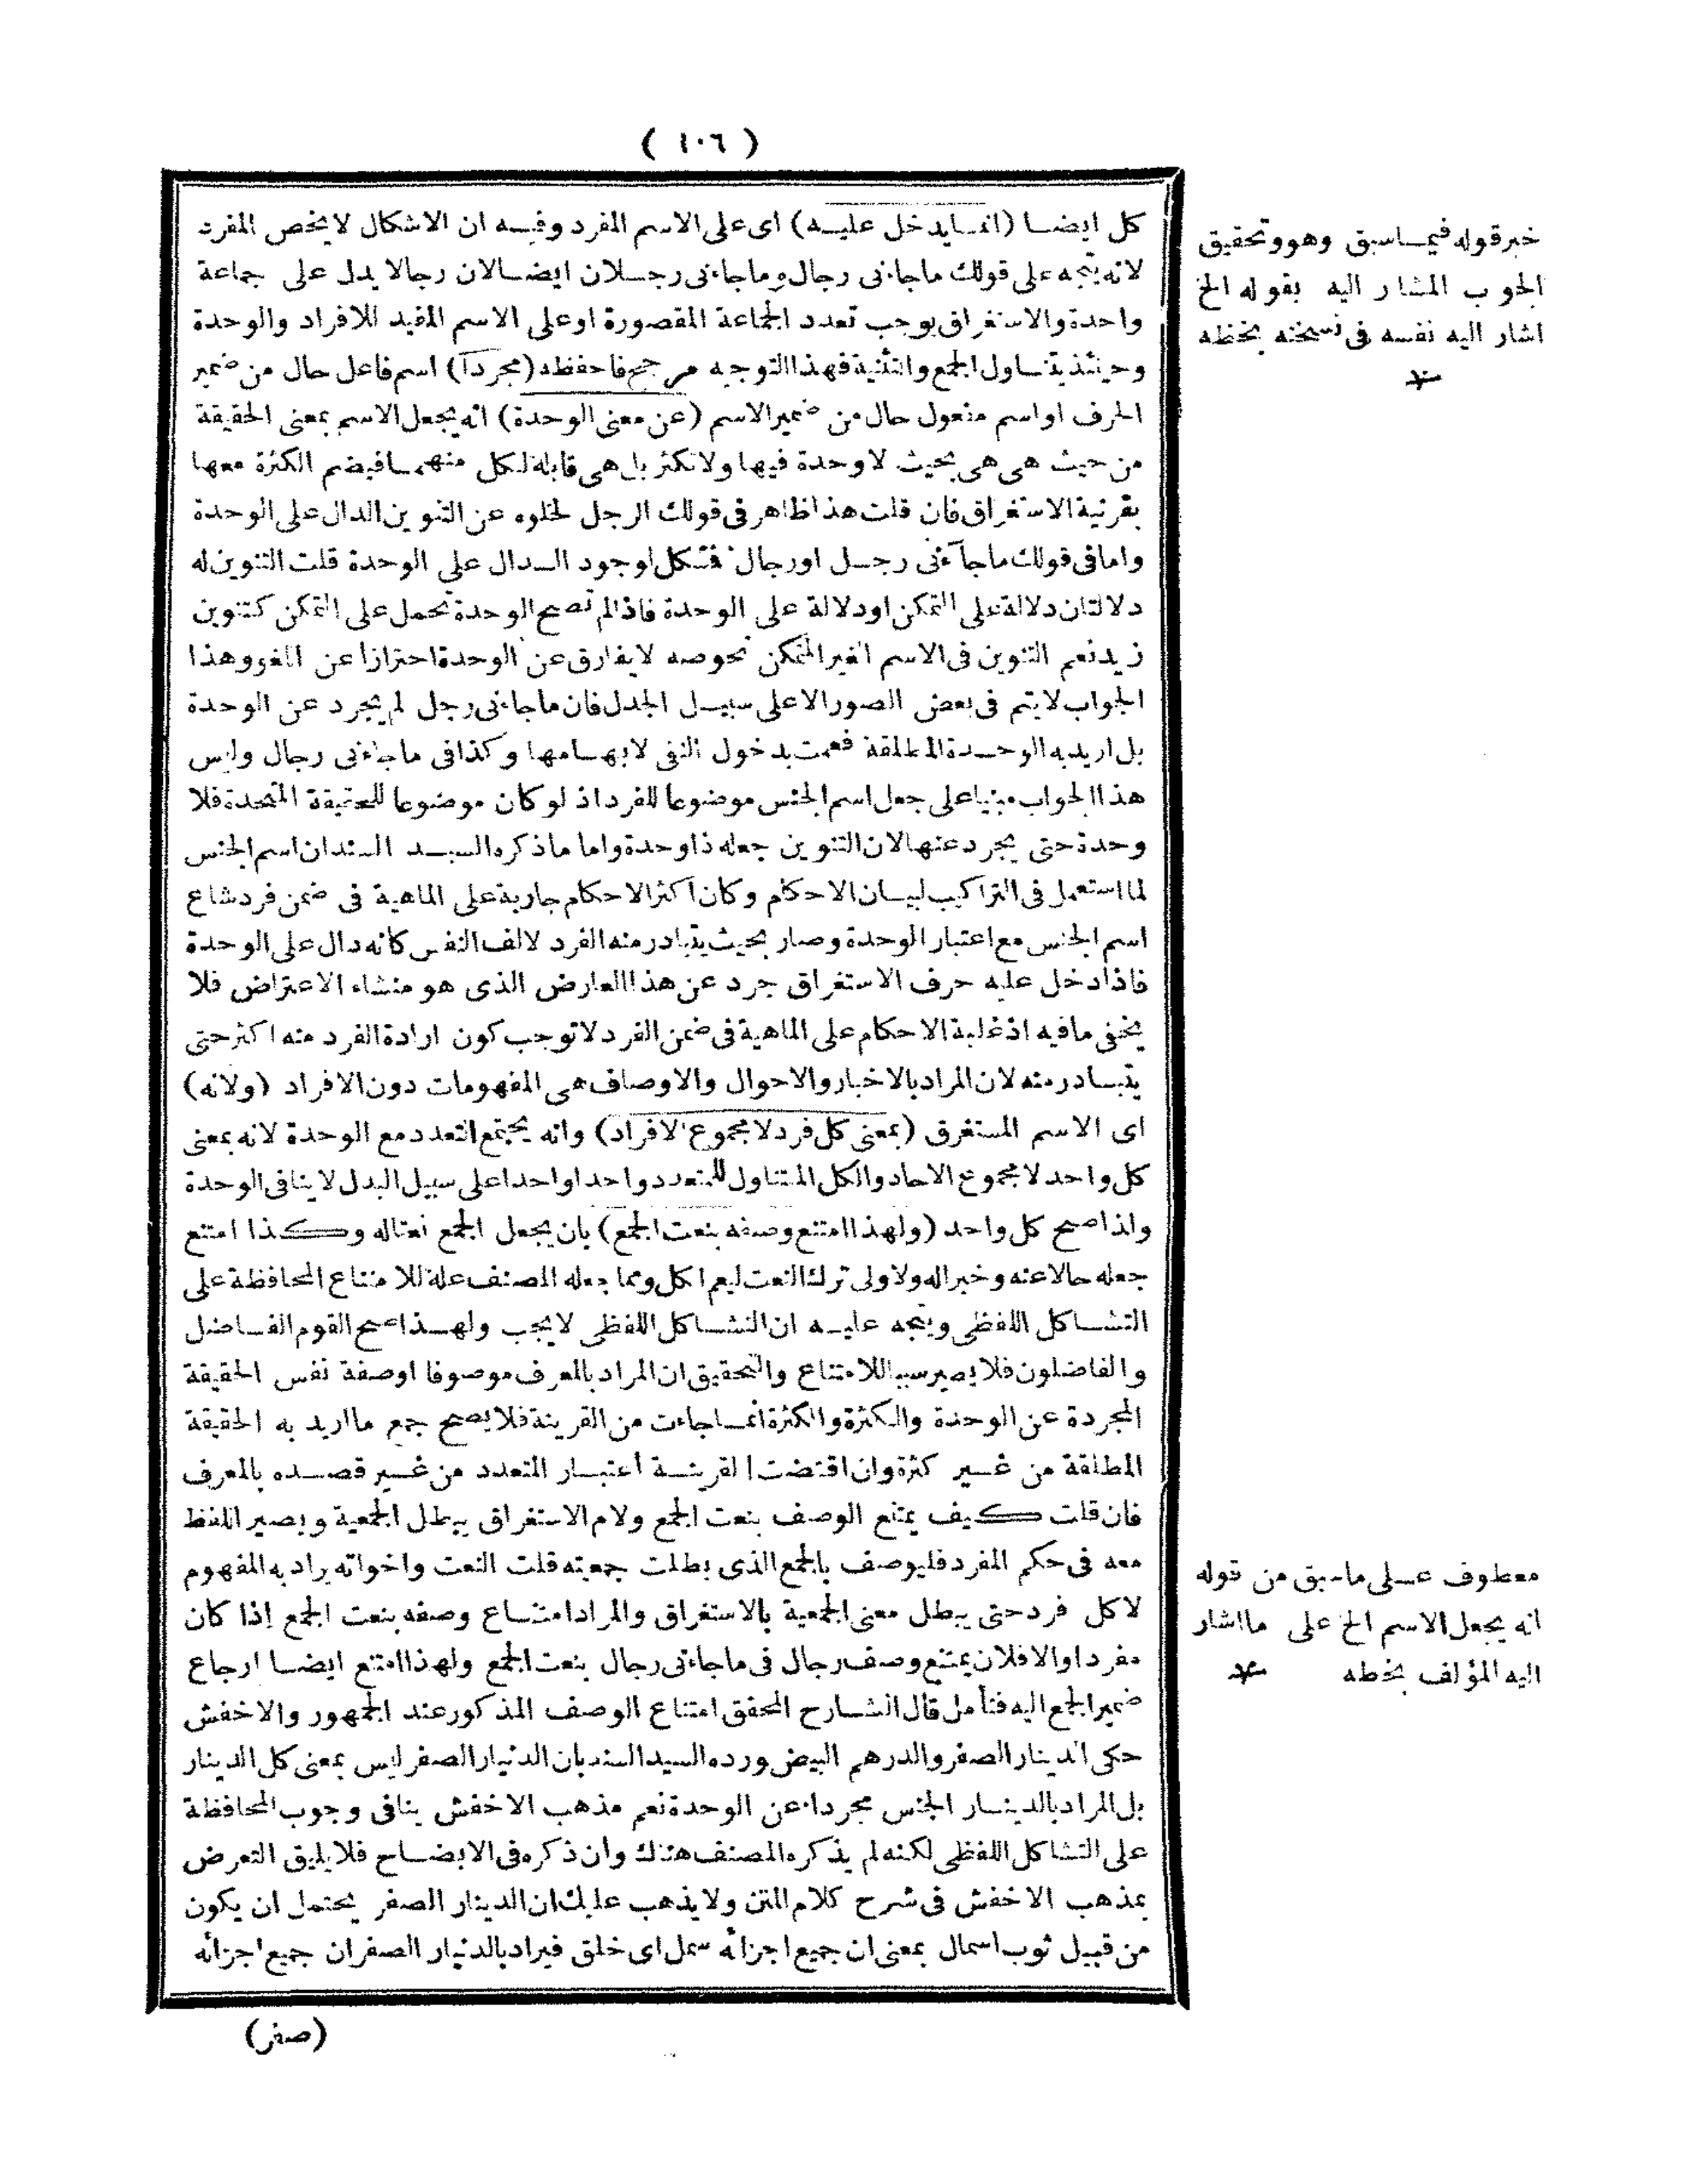 ( ١٠٦ )
كل ايضـا (انمـايدخل عليـه) اى على الاسم المفرد وفيـه ان الاشكال لا يخص المفرد
لانه يتجه على قولك ماجاءنى رجال وماجاءنى رجـلان ايضـا لان رجالا يدل على جماعة
واحدة والاستغراق يوجب تعدد الجماعة المقصورة او على الاسم المفيد للافراد والوحدة
وحينئذ يتناول الجمع والتثنية فهذا التوجيه مرجح فاحفظه (مجردا) اسم فاعل حال من ضمير
الحرف او اسم مفعول حال من ضمير الاسم (عن معنى الوحدة) انه يجعل الاسم بمعنى الحقيقة
من حيث هى هى بحيث لا وحدة فيها ولا تكثر بل هى قابلة لكل منهمـا فيضم الكثرة معها
بقرنية الاستغراق فان قلت هذا ظاهر فى قولك الرجل لخلوه عن التنوين الدال على الوحدة
واما فى قولك ماجآءنى رجـل او رجال فشكل لوجود الـدال على الوحدة قلت التنوين له
دلالتان دلالة على التمكن او دلالة على الوحدة فاذا لم تصح الوحدة تحمل على التمكن كتنوين
زيد نعم التنوين فى الاسم الغير المتمكن نحوصه لا يفارق عن الوحدة احترازا عن اللغو وهذا
الجواب لا يتم فى بعض الصور الا على سبيـل الجدل فان ماجاءنى رجل لم يجرد عن الوحدة
بل اريد به الوحـدة المطلقة فعمت بدخول النفى لابهـامها وكذا فى ماجاءنى رجال وليس
هذا الجواب مبنيا على جعل اسم الجنس موضوعا للفرد اذ لو كان موضوعا للحقيقة المتحدة فلا
وحدة حتى يجرد عنها لان التنوين جعله ذا وحدة واما ما ذكره السيـد السند ان اسم الجنس
لما استعمل فى التراكيب لبيـان الاحكام وكان اكثر الاحكام جارية على الماهية فى ضمن فرد شاع
اسم الجنس مع اعتبار الوحدة وصار بحيث يتبادر منه الفرد لالف النفس كانه دال على الوحدة
فاذا دخل عليه حرف الاستغراق جرد عن هذا العارض الذى هو منشاء الاعتراض فلا
يخفى ما فيه اذ غلبة الاحكام على الماهية فى ضمن الفرد لا توجب كون ارادة الفرد منه اكثر حتى
يتبـادر منه لان المراد بالاخبار والاحوال والاوصاف هى المفهومات دون الافراد (ولانه)
اى الاسم المستغرق (بمعنى كل فرد لا مجموع الافراد) وانه يجتمع التعدد مع الوحدة لانه بمعنى
كل واحد لا مجموع الاحاد والكل المتناول للمتعدد واحدا واحدا على سبيل البدل لا ينافى الوحدة
ولذا صح كل واحد (ولهذا امتنع وصفه بنعت الجمع) بان يجعل الجمع نعتاله وكـذا امتنع
جعله حالا عنه وخبرا له ولاولى ترك النعت ليعم الكل ومما جعله المصنف علة للامتناع المحافظة على
التشـاكل اللفظى ويتجه عليـه ان التشـاكل اللفظى لا يجب ولهـذا صح القوم الفـاضل
والفاضلون فلا يصير سببا للامتناع والتحقيق ان المراد بالمعرف موصوفا او صفة نفس الحقيقة
المجردة عن الوحدة والكثرة والكثرة انمـا جاءت من القرينة فلا يصح جمع ما اريد به الحقيقة
المطلقة من غـير كثرة وان اقتضت القرينـة اعتبـار التعدد من غـير قصـده بالمعرف
فان قلت كـيف يمتنع الوصف بنعت الجمع ولام الاستغراق يبطل الجمعية ويصير اللفظ
معه فى حكم المفرد فليوصف بالجمع الذى بطلت جمعيته قلت النعت واخواته يراد به المفهوم
لا كل فرد حتى يبطل معنى الجمعية بالاستغراق والمراد امتنـاع وصفه بنعت الجمع إذا كان
مفردا والا فلا يمتنع وصف رجال فى ماجاءنى رجال بنعت الجمع ولهذا امتنع ايضـا ارجاع
ضمير الجمع اليه فتأمل قال الشـارح المحقق امتناع الوصف المذكور عند الجمهور والاخفش
حكى الدينار الصفر والدرهم البيض ورده السيد السند بان الدنيار الصفر ليس بمعنى كل الدينار
بل المراد بالدينـار الجنس مجردا عن الوحدة نعم مذهب الاخفش ينافى وجوب المحافظة
على التشاكل اللفظى لكنه لم يذكره المصنف هناك وان ذكره فى الايضـاح فلا يليق التعرض
بمذهب الاخفش فى شرح كلام المتن ولا يذهب عليك ان الدينار الصفر يحتمل ان يكون
من قبيل ثوب اسمال بمعنى ان جميع اجزائه سمل اى خلق فيراد بالدنيار الصفر ان جميع اجزائه
(صفر)
خبر قوله فيمـا سبق وهو وتحقيق
الجوب المشار اليه بقوله الخ
اشار اليه نفسه فى نسخته بخطه
معطوف عـلى ماسبق من قوله
انه يجعل الاسم الخ على مااشار
اليه المؤلف بخطه